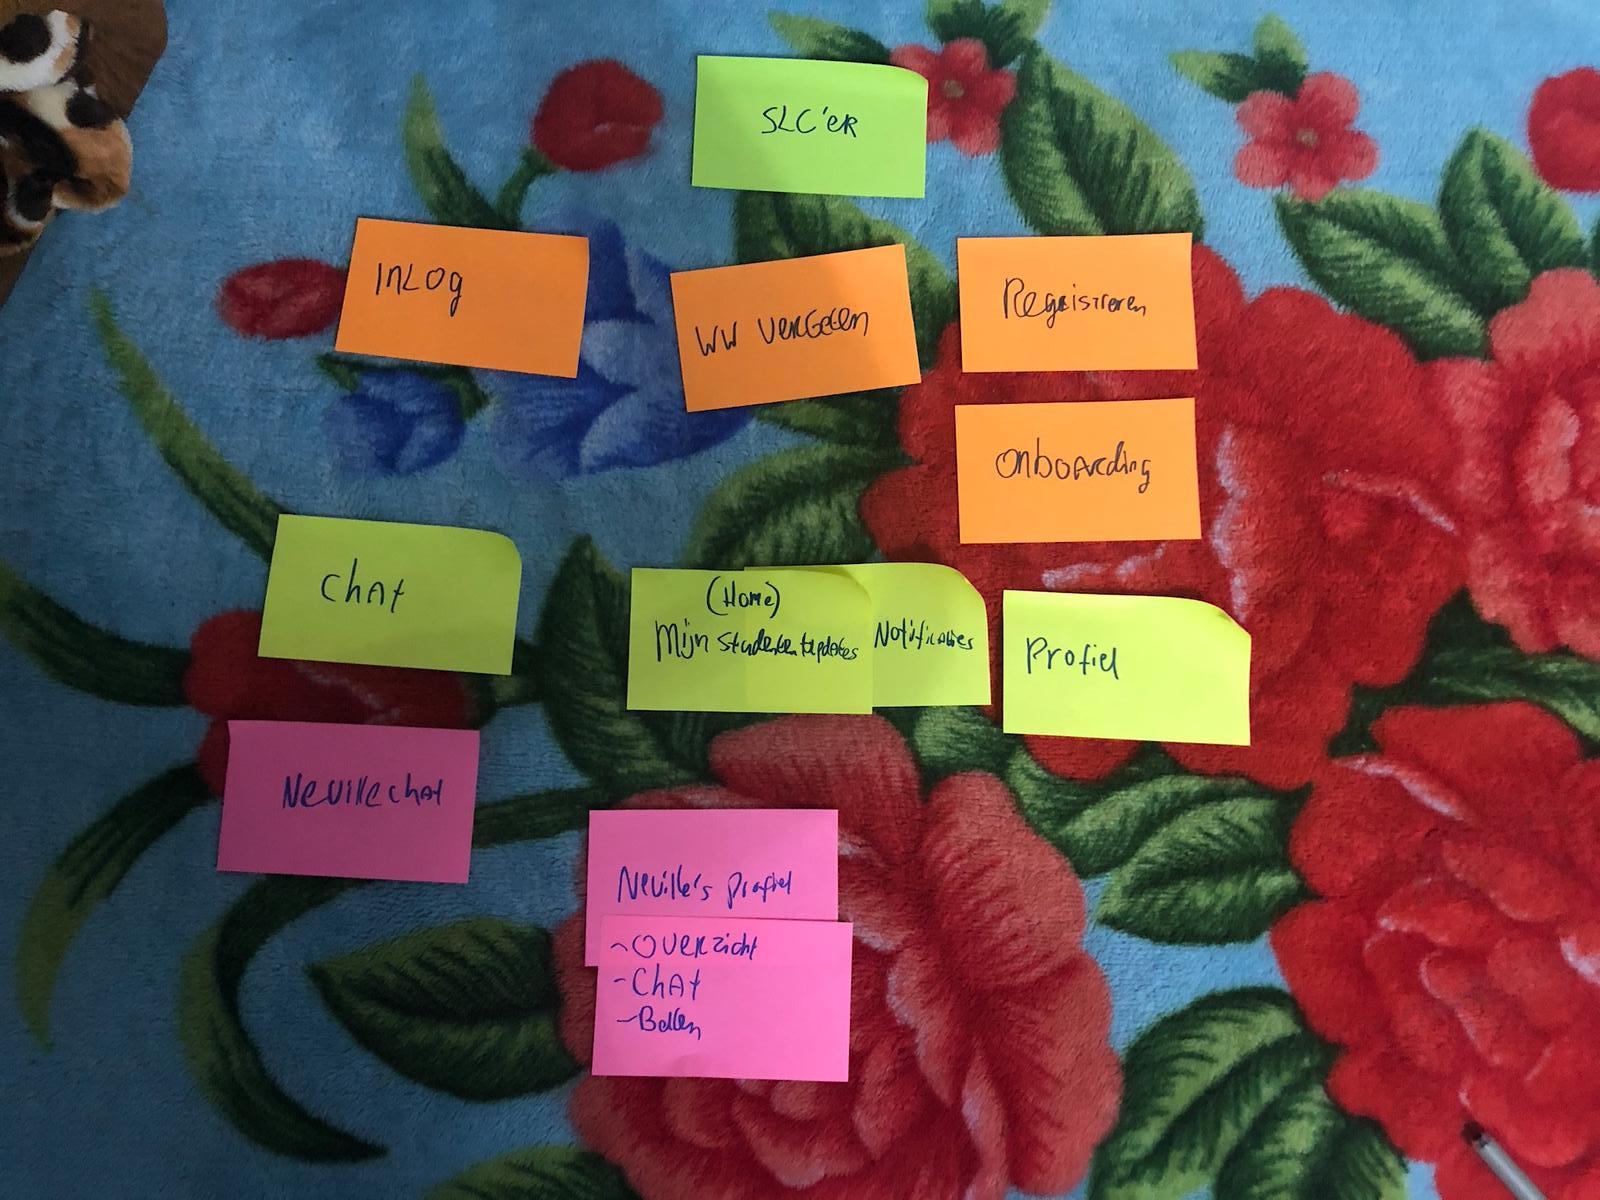 SLC'er
Inlog
WW vergeten
Registreren
Onboarding
Chat
(Home)
Mijn studenten updates
Notificaties
Profiel
Neville chat
Neville's profiel
- Overzicht
- Chat
- Bellen